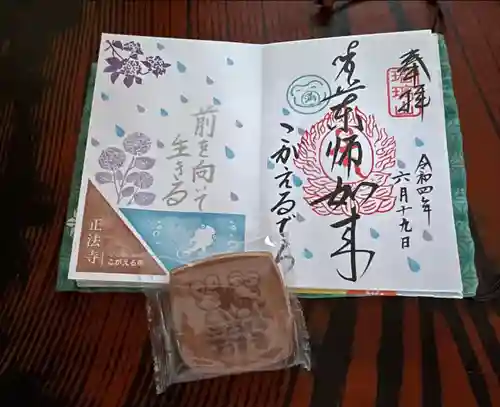 奉拝
薬師如来
こがえる寺
令和四年
六月十九日
前を向いて
生きる
正法寺
こがえる寺